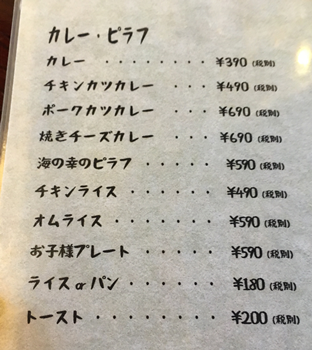 カレー・ピラフ
カレー ・・・・・・・・ ¥390 (税別)
チキンカツカレー ・・・・ ¥490 (税別)
ポークカツカレー ・・・ ¥690 (税別)
焼きチーズカレー ・・・ ¥690 (税別)
海の幸のピラフ ・・・・・ ¥590 (税別)
チキンライス ・・・・・・ ¥490 (税別)
オムライス ・・・・・・・ ¥590 (税別)
お子様プレート ・・・・・ ¥590 (税別)
ライス or パン ・・・・・・ ¥180 (税別)
トースト ・・・・・・・・ ¥200 (税別)